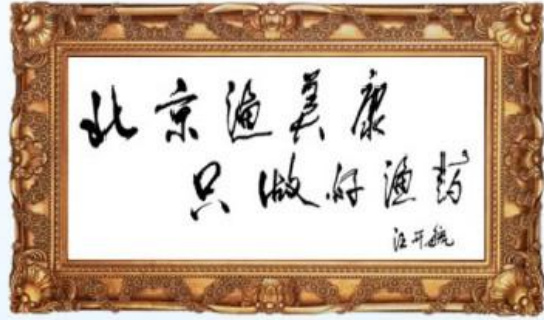 北京渔美康
只做好渔药
汪开毓